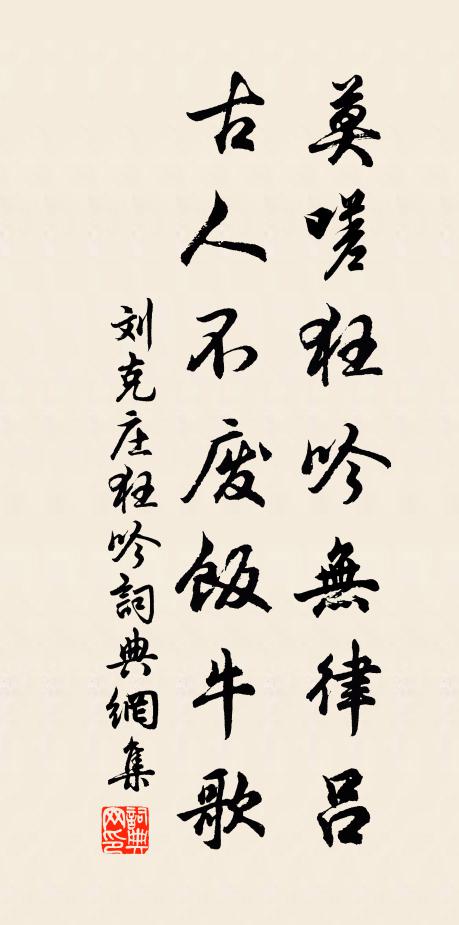 莫嗟狂吟無律吕
古人不废飯牛歌
刘克庄狂吟詞典網集
詞典网印